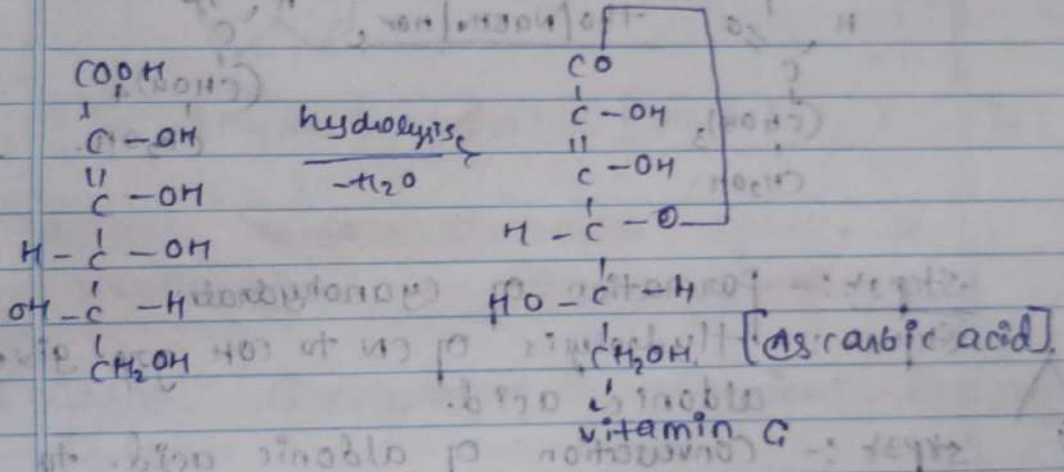 COOH
C - OH
C - OH
H - C - OH
OH - C - H
CH2OH
hydrolysis
-H2O
CO
C - OH
C - OH
H - C - O
HO - C - H
CH2OH [As carbic acid]
vitamin C